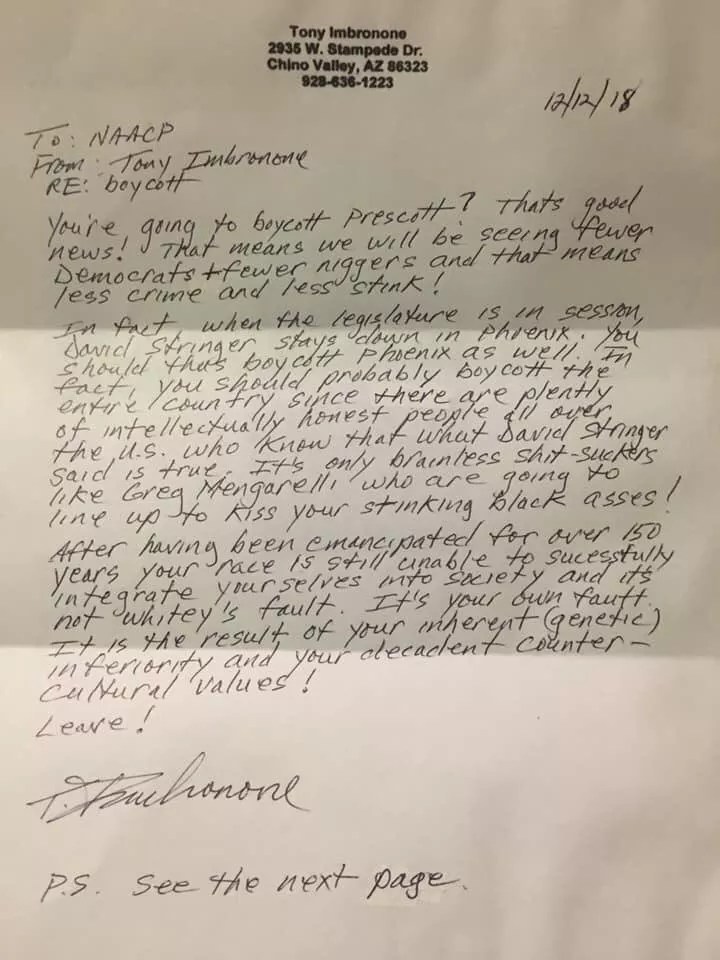 Tony Imbronone
2935 W. Stampede Dr.
Chino Valley, AZ 86323
928-636-1223
12/12/18
To: NAACP
From: Tony Imbronone
RE: boycott
You're going to boycott Prescott? Thats good
news! That means we will be seeing fewer
Democrats + fewer niggers and that means
less crime and less stink!
In fact, when the legislature is in session,
David Stringer stays down in Phoenix. You
should thus boycott Phoenix as well. In
fact, you should probably boycott the
entire country since there are plently
of intellectually honest people all over
the U.S. who know that what David Stringer
said is true. It's only brainless shit-suckers
like Greg Mengarelli who are going to
line up to kiss your stinking black asses!
After having been emancipated for over 150
years your race is still unable to sucessfully
integrate yourselves into society and it's
not whitey's fault. It's your own fault.
It is the result of your inherent (genetic)
inferiority and your decadent counter-
cultural values!
Leave!
T. Imbronone
P.S. see the next page.